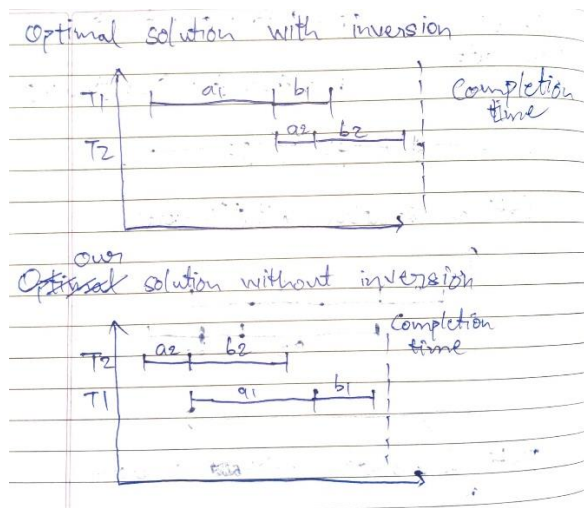 Optimal solution with inversion
T1 a1 b1
Completion time
T2 a2 b2
our
Optimal solution without inversion
Completion time
T2 a2 b2
T1 a1 b1